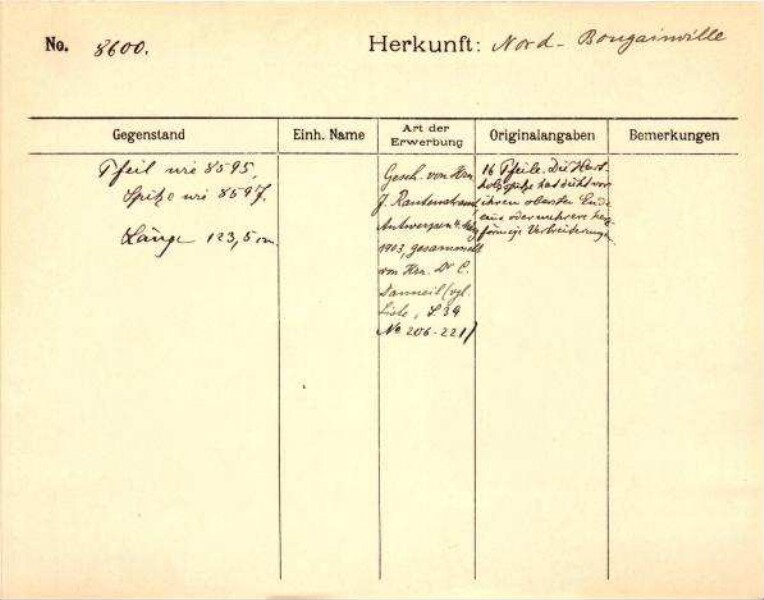 No. 8600. Herkunft: Nord-Bougainville
Gegenstand Einh. Name Art der Erwerbung Originalangaben Bemerkungen
Pfeil wie 8595,
Spitze wie 8597.
Länge 123,5 cm
Gesch. von Hrn
J. Rautenstrauch,
Antwerpen 4.
1903, gesammelt
von Hrn. Dr C.
Danneil (vgl.
Liste, S. 34
No 206-221)
16 Pfeile. Die Hart-
holzspitze hat dicht vor
ihrem obersten Ende
eine oder mehrere
förmige Verbreiterungen.